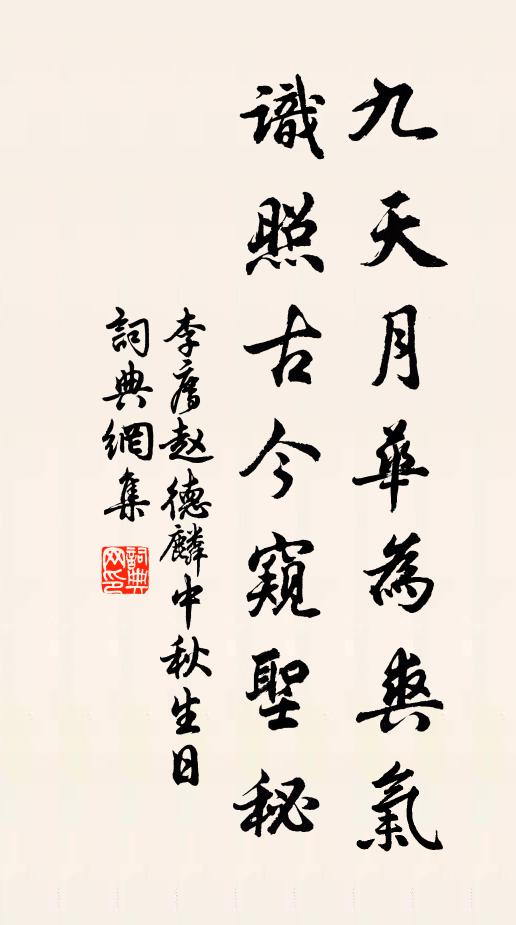 九天月華為爽氣
識照古今窺聖秘
李廌赵德麟中秋生日
詞典網集
詞典网印